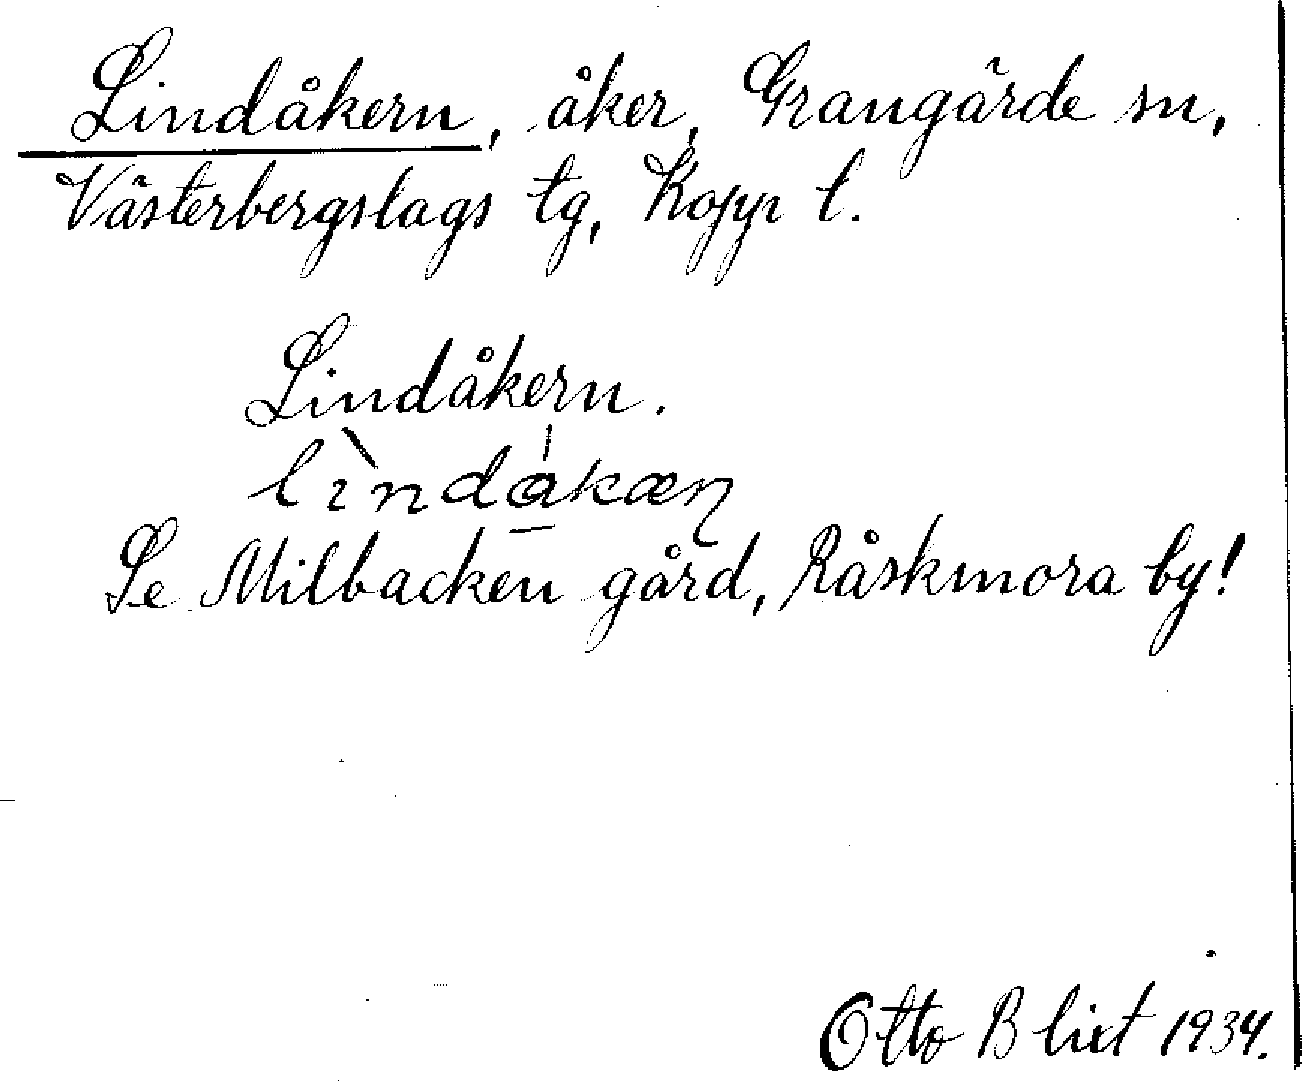 Lindåkern, åker, Grangärde sn,
Västerbergslags tg, Kopp l.
Lindåkern.
lìndåkæɳ
Se Milbacken gård, Råskmora by!
Otto Blixt 1934.